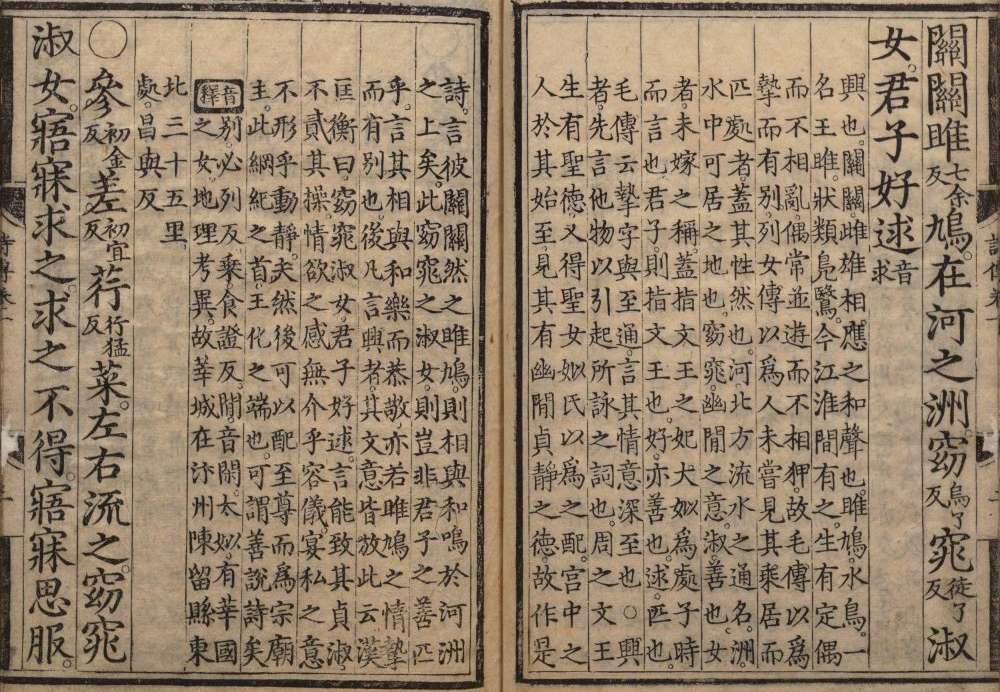 關關雎七余反鳩。在河之洲。窈烏了反窕徒了反淑
女。君子好逑音求
興也。關關。雌雄相應之和聲也。雎鳩。水鳥。一
名王雎。狀類鳧鷖。今江淮間有之。生有定偶
而不相亂。偶常並遊而不相狎。故毛傳以爲
摯而有別。列女傳以爲人未嘗見其乘居而
匹處者。蓋其性然也。河北方流水之通名。洲
水中可居之地也。窈窕幽閒之意。淑善也。女
者。未嫁之稱。蓋指文王之妃大姒爲處子時
而言也。君子。則指文王也。好。亦善也。逑。匹也。
毛傳云摯字與至通。言其情意深至也○興
者。先言他物以引起所詠之詞也。周之文王
生有聖德。又得聖女姒氏以爲之配。宮中之
人。於其始至。見其有幽閒貞靜之德。故作是
詩。言彼關關然之雎鳩。則相與和鳴於河洲
之上矣。此窈窕之淑女。則豈非君子之善匹
乎。言其相與和樂而恭敬。亦若雎鳩之情摯
而有別也。後凡言興者。其文意皆放此云。漢
匡衡曰。窈窕淑女。君子好逑。言能致其貞淑。
不貳其操。情欲之感。無介乎容儀。宴私之意
不形乎動靜。夫然後可以配至尊而爲宗廟
主。此綱紀之首。王化之端也。可謂善說詩矣
音釋別。必列反。乘。食證反。閒。音閑。太姒。有莘國
之女。地理考異。故莘城在汴州陳留縣東
北三十五里。
處。昌與反
○參初金反差初宜反荇行猛反菜。左右流之。窈窕
淑女。寤寐求之。求之不得。寤寐思服。